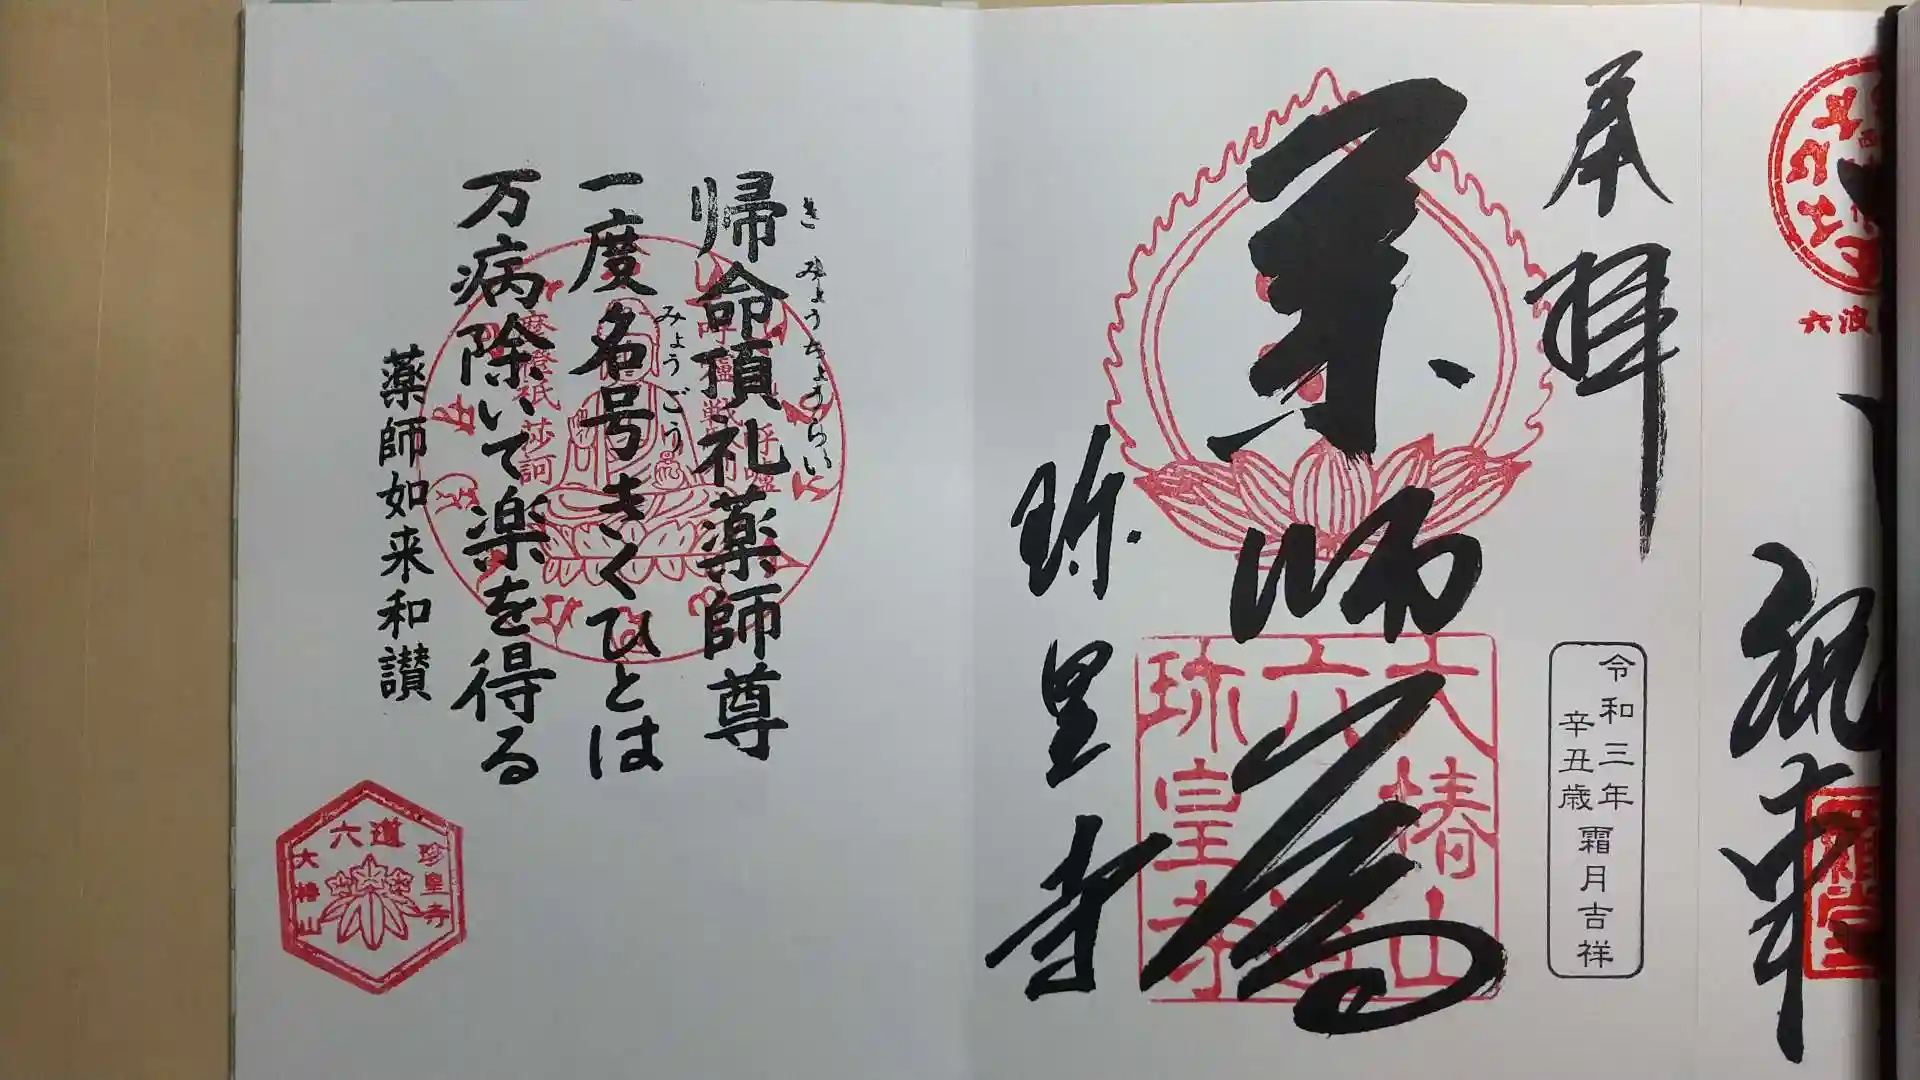 奉拝
薬師尊
珎皇寺
大椿山
六道
珎皇寺
令和三年
辛丑歳
霜月吉祥
六波
帰命頂礼薬師尊
きみょうちょうらい
一度名号きくひとは
みょうごう
万病除いて楽を得る
薬師如来和讃
六道
珍皇寺
大椿山